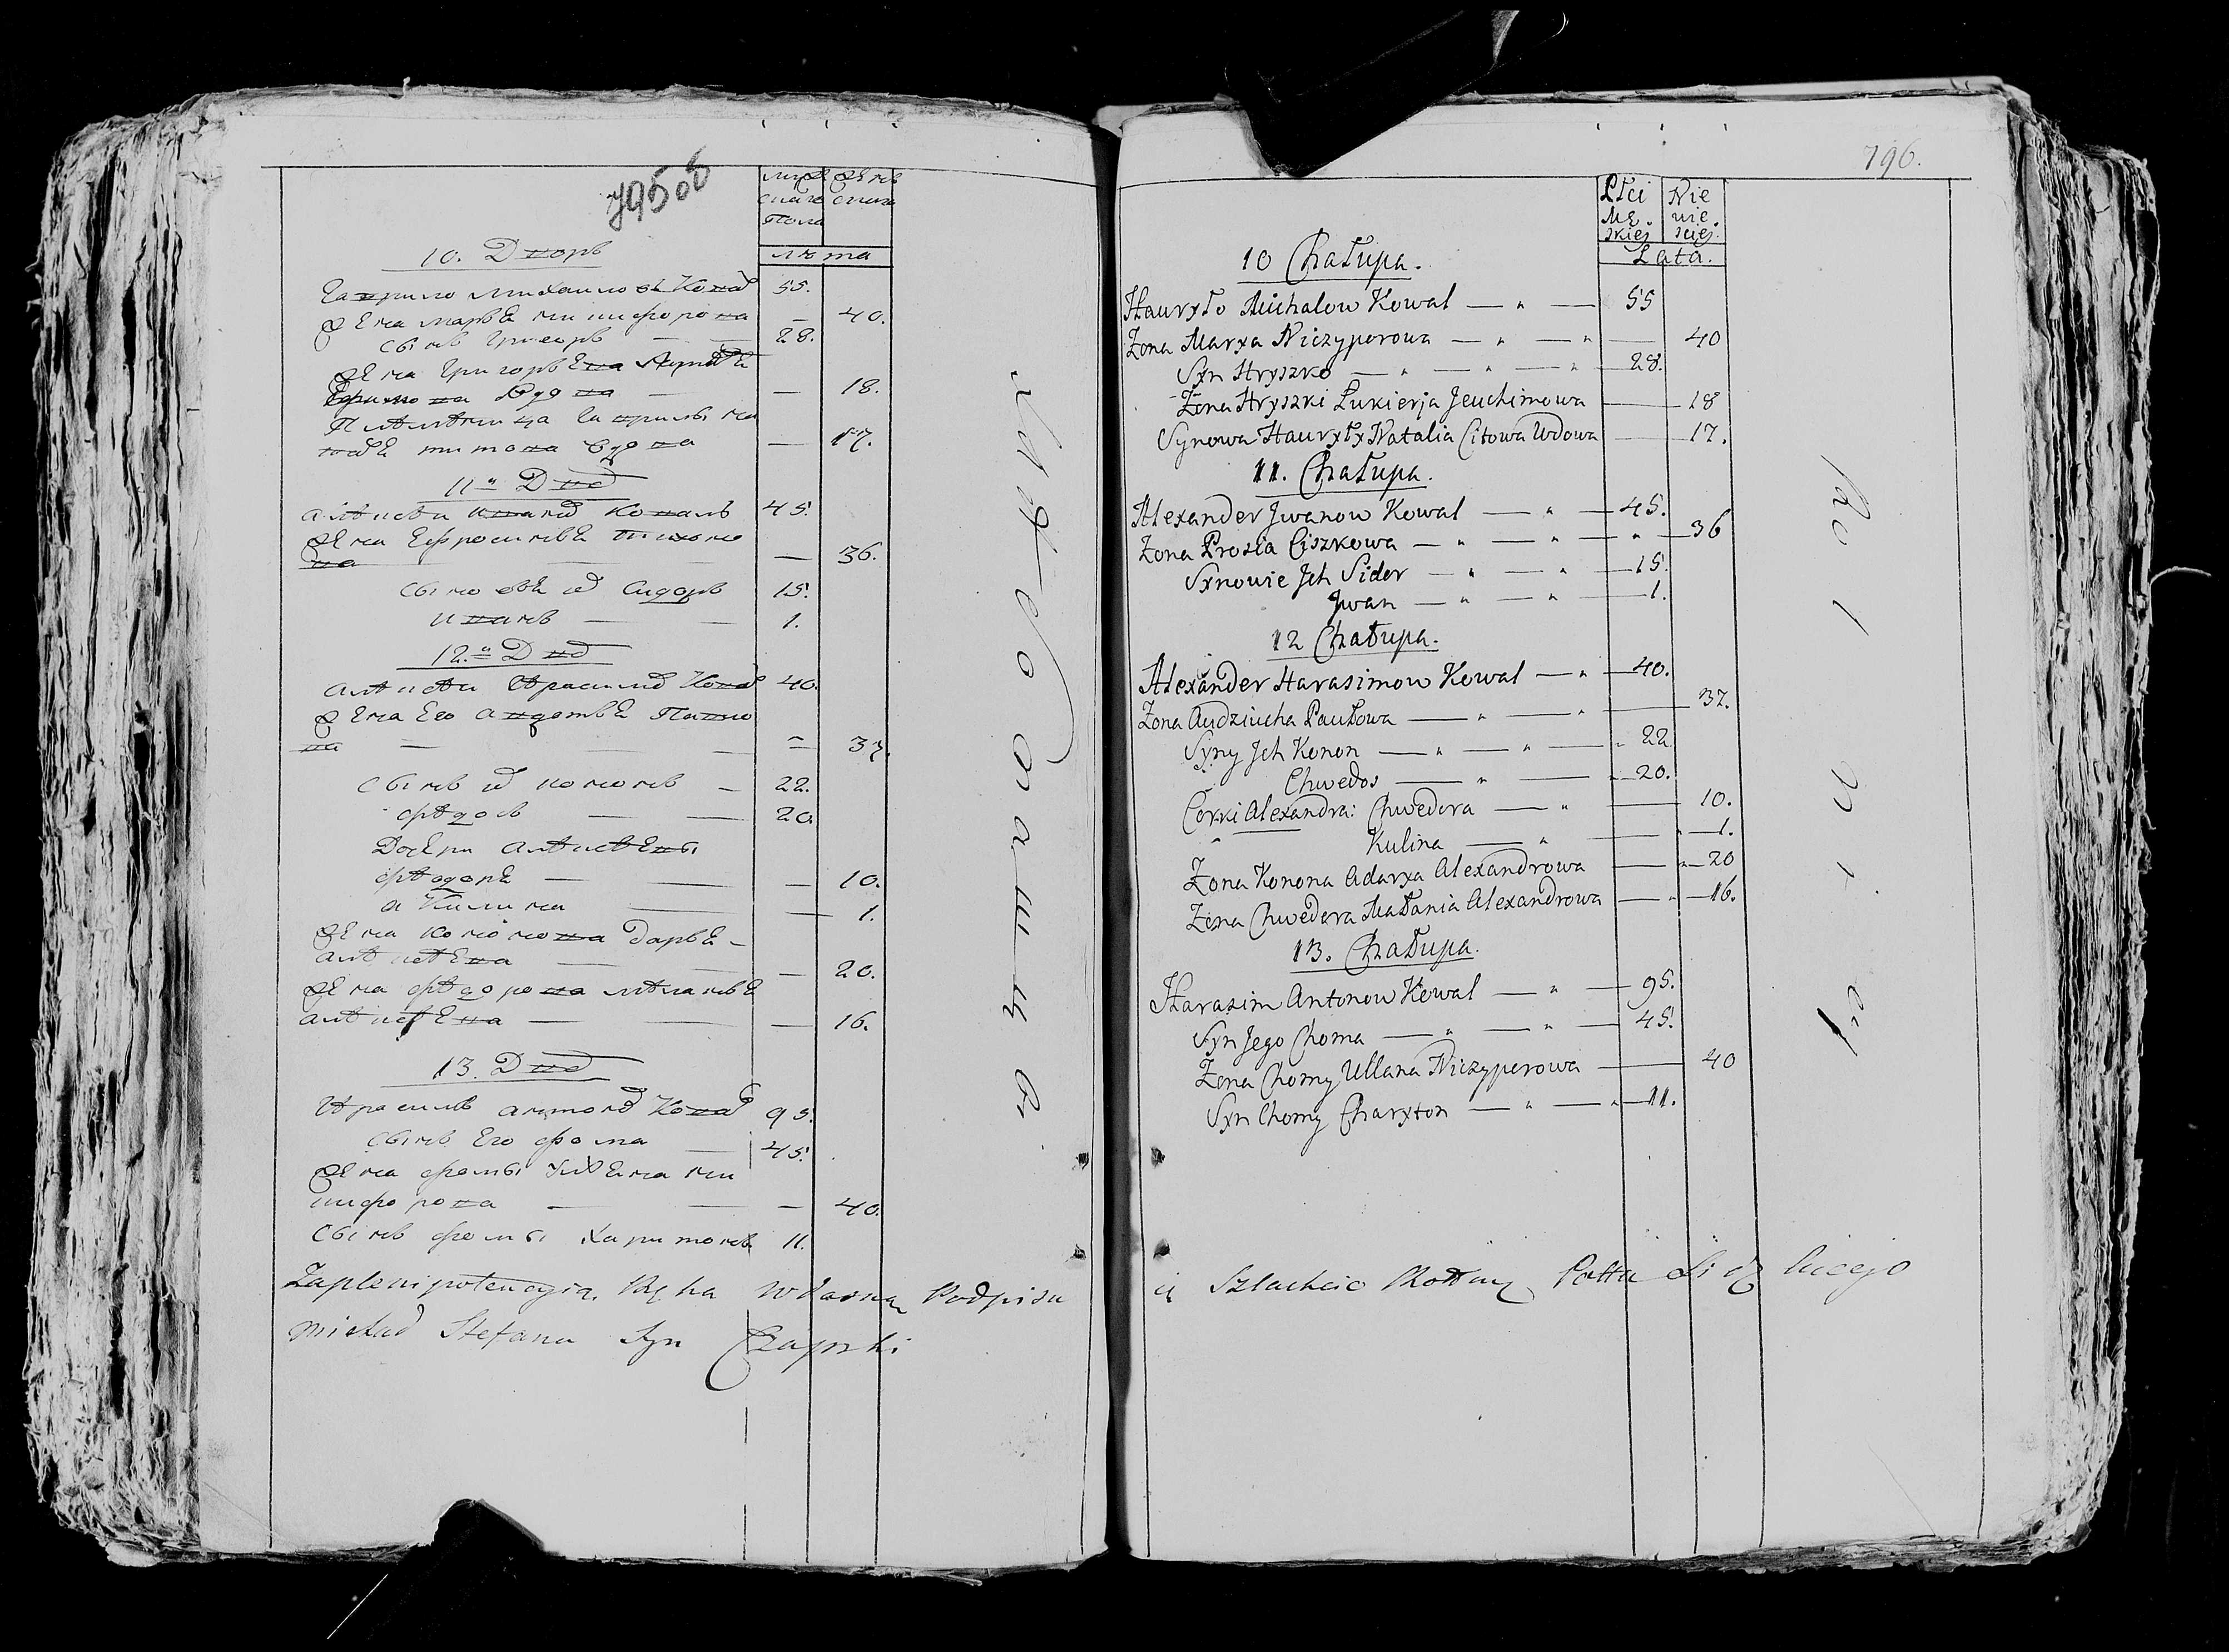 795об
мужс женс
каго скаго
пола
лѣта
10. Дворъ
Гаврило Михаиловъ Ковал 55.
Жена Марья Никифорова — 40.
Сынъ Григоръ — — 28.
Жена Григорьева Лукерья
Ефимова Вдова — — 18.
Гаврилы На
талья Титова Вдова — 17.
11й Двор
Алексей Иванов Коваль 45.
Жена Ефросинья Тихоно
ва — — — 36.
Сыновья их Сидоръ 15.
Иванъ — — 1.
12й Двор
Алексей Герасимов Ковал 40.
Жена Его Авдотья Павло
ва — — — 37.
Сынъ их Кононъ — 22.
Федосъ — — 20.
Дочери Алексея
Федора — — — 10.
Акилина — — 1.
Жена Кононова Дарья —
Алексеева — — — 20.
Жена Федорова Меланья
Алексеева — — — 16.
13. Двор
Герасимъ Антонов Ковал 95.
Сынъ Его Фома — 45.
Жена Фомы Ульяна Ни
кифорова — — — 40.
Сынъ Фомы Харитонъ 11.
Zaplenipotencyia. Ręka własna Podpisu
Michał Stefana Syn Czapski
796.
Płci Nie
Mę. wie.
skiej sciej.
Lata.
10 Chałupa.
Hauryło Michalow Kowal — " — 55
Zona Marya Niczyporowa — " — " — 40
Syn Hryszko — " — " — " — 28.
Zona Hryszki Łukierja Jeuchimowa — 18
Synowa Hauryły Natalia Citowa Wdowa — 17.
11. Chałupa.
Alexander Jwanow Kowal — " — 45.
Zona Prosia Ciszkowa — " — " — " — 36
Synowie Jch Sidor — " — " — 15.
Jwan — " — " — 1.
12 Chałupa.
Alexander Harasimow Kowal — " — 40.
Zona Audziucha Paułowa — " — " — 37.
Syny Jch Konon — " — " — " 22
Chwedos — " — " 20.
Corki Alexandra: Chwedora — " — 10.
Kulina — " — " — 1.
Zona Konona Adarya Alexandrowa — " — 20
Zona Chwedora Małania Alexandrowa — " — 16.
13. Chałupa.
Harasim Antonow Kowal — " — 95.
Syn Jego Choma — " — " — 45.
Zona Chomy Ullana Niczyporowa — 40
Syn Chomy Charyton — " — " 11.